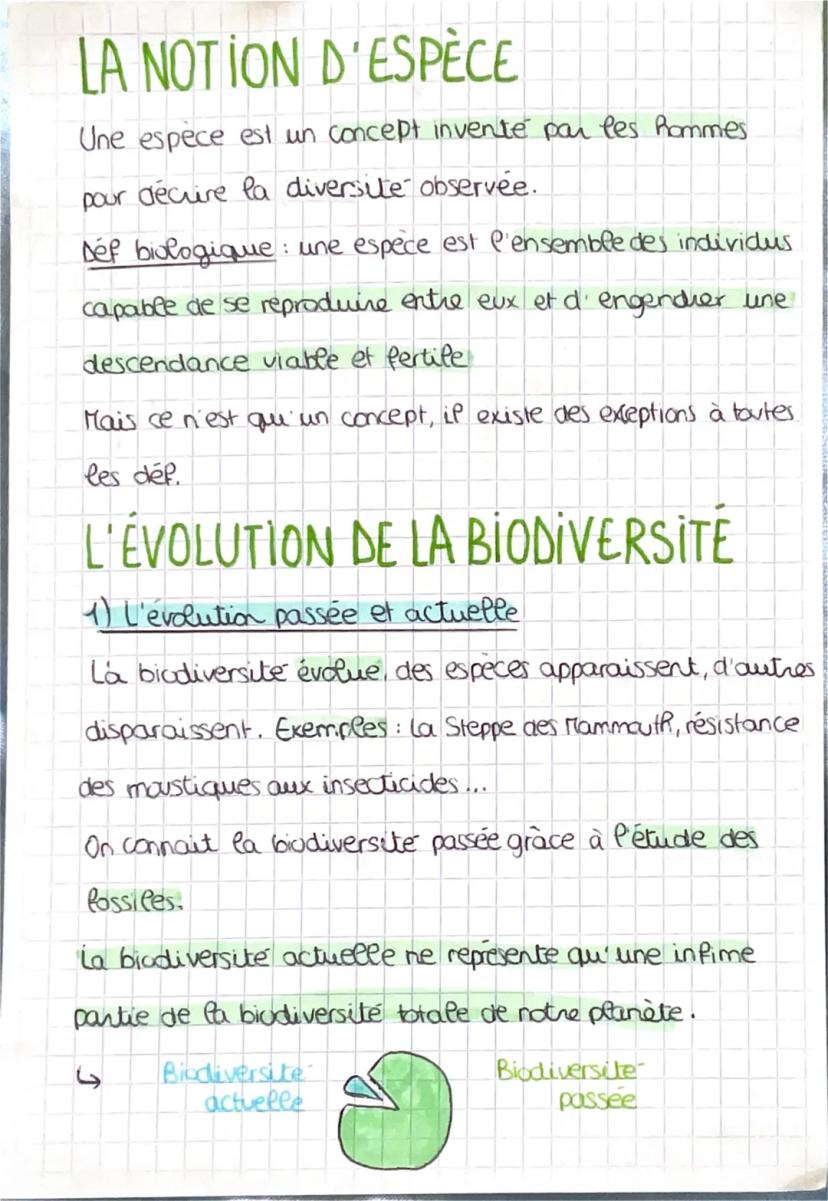 LA NOTION D'ESPÈCE
Une espèce est un concept inventé par les hommes
pour décrire la diversité observée.
Déf biologique : une espèce est l'ensemble des individus
capable de se reproduire entre eux et d'engendrer une
descendance viable et fertile
Mais ce n'est qu'un concept, il existe des exeptions à toutes
les déf.
L'ÉVOLUTION DE LA BIODIVERSITÉ
1) L'évolution passée et actuelle
La biodiversité évolue, des espèces apparaissent, d'autres
disparaissent. Exemples : La Steppe des Mammouth, résistance
des moustiques aux insecticides...
On connait la biodiversité passée grâce à l'étude des
fossiles.
La biodiversité actuelle ne représente qu'une infime
partie de la biodiversité totale de notre planète.
↳ Biodiversité actuelle
Biodiversité passée